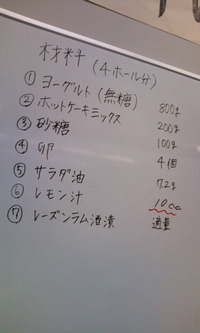 材料(4ホール分)
① ヨーグルト(無糖) 800g
② ホットケーキミックス 200g
③ 砂糖 100g
④ 卵 4個
⑤ サラダ油 72g
⑥ レモン汁 10cc
⑦ レーズンラム酒漬 適量